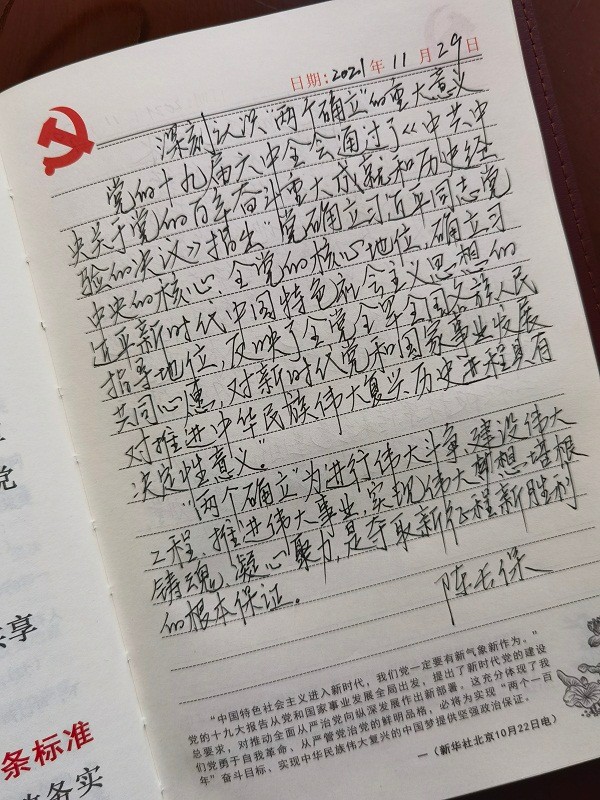 日期: 2021 年 11 月 29 日
深刻认识"两个确立"的重大意义
党的十九届六中全会通过了《中共中
央关于党的百年奋斗重大成就和历史经
验的决议》指出"党确立习近平同志党
中央的核心、全党的核心地位,确立习
近平新时代中国特色社会主义思想的
指导地位,反映了全党全军全国各族人民
共同心愿,对新时代党和国家事业发展
对推进中华民族伟大复兴历史进程具有
决定性意义。"
"两个确立"为进行伟大斗争、建设伟大
工程、推进伟大事业、实现伟大梦想、培根
铸魂、凝心聚力,是夺取新征程新胜利
的根本保证。
陈长保
"中国特色社会主义进入新时代,我们党一定要有新气象新作为。"
党的十九大报告从党和国家事业发展全局出发,提出了新时代党的建设
总要求,对推动全面从严治党向纵深发展作出新部署。这充分体现了我
们党勇于自我革命、从严管党治党的鲜明品格,必将为实现"两个一百
年"奋斗目标、实现中华民族伟大复兴的中国梦提供坚强政治保证。
—(新华社北京10月22日电)
党
共享
条标准
务实